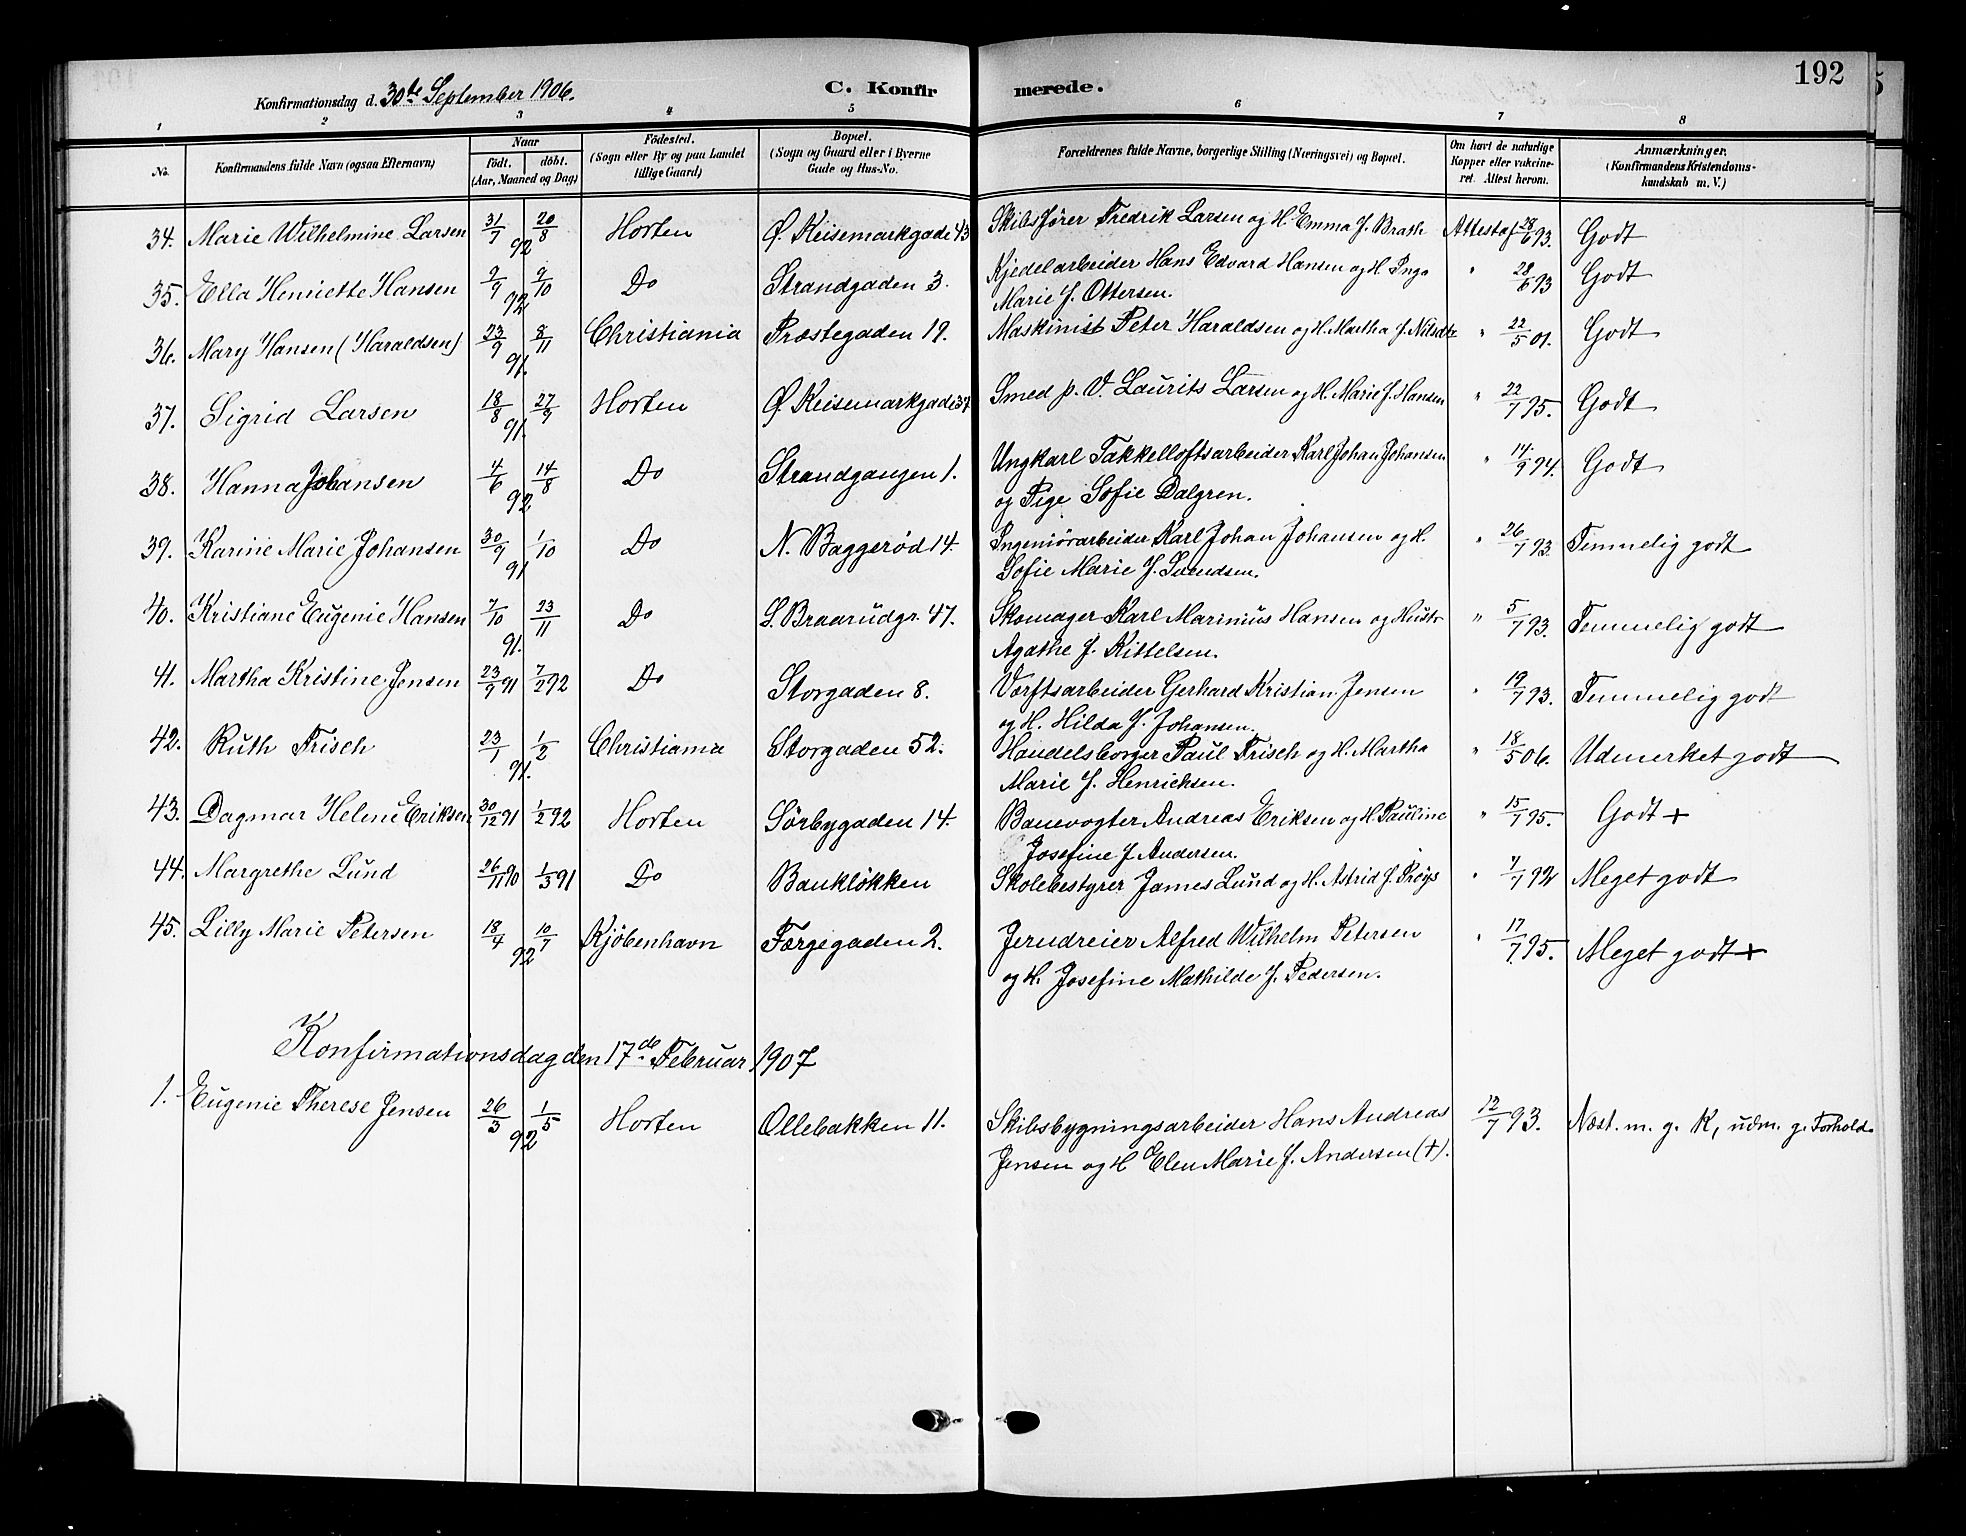 192
Konfirmationsdag d. 30te September 1906. C. Konfirmerede.
1 2 3 4 5 6 7 8
No. Konfirmandens fulde Navn (ogsaa Efternavn) Naar födt. döbt. (Aar, Maaned og Dag) Födested. (Sogn eller By og paa Landet tillige Gaard) Bopæl. (Sogn og Gaard eller i Byerne Gade og Hus-No. Forældrenes fulde Navne, borgerlige Stilling (Næringsvei) og Bopæl. Om havt de naturlige Kopper eller vakcineret. Attest herom. Anmærkninger, (Konfirmandens Kristendomskundskab m. V.)
34. Marie Wilhelmine Larsen 31/7 20/8 92 Horten Ø. Keisemarkgade 43 Skibsfører Fredrik Larsen og H. Emma f. Brath Attest af 28/6 93. Godt
35. Ella Henriette Hansen 9/9 9/10 92 Do Strandgaden 3. Kjedelarbeider Hans Edvard Hansen og H. Inga
Marie f. Ottersen. " 28/6 93 Godt
36. Mary Hansen (Haraldsen) 23/9 8/11 91. Christiania Præstegaden 19. Maskinist Peter Haraldsen og H. Martha f. Nilsdtr " 22/5 01. Godt
37. Sigrid Larsen 18/8 27/9 91. Horten Ø. Keisemarkgade 37 Smed p. V. Laurits Larsen og H. Marie f. Hansen " 22/7 95. Godt
38. Hanna Johansen 4/6 14/8 92 Do Strandgangen 1. Ungkarl Takkelloftsarbeider Karl Johan Johansen
og Pige Sofie Dalgren. " 14/9 94. Godt
39. Karine Marie Johansen 30/9 1/10 91 Do N. Baggerød 14. Ingeniørarbeider Karl Johan Johansen og H.
Sofie Marie f. Svendsen. " 26/7 93. Temmelig godt
40. Kristiane Eugenie Hansen 7/10 23/11 91. Do S. Braarudgr. 47. Skomager Karl Marinius Hansen og Hustr
Agathe f. Kittelsen. " 5/7 93. Temmelig godt
41. Martha Kristine Jensen 23/9 91 7/2 92 Do Storgaden 8. Værftsarbeider Gerhard Kristian Jensen
og H. Hilda f. Johansen. " 19/7 93. Temmelig godt
42. Ruth Frisch 23/1 1/2 91. Christiania Storgaden 52. Handelsborger Paul Frisch og H. Martha
Marie f. Henricksen. " 18/5 06. Udmerket godt
43. Dagmar Helene Eriksen 30/12 91 1/2 92 Horten Sørbygaden 14. Banevogter Andreas Eriksen og H. Pauline
Josefine f. Andersen. " 15/7 95. Godt +
44. Margrethe Lund 26/11 90 1/3 91 Do Bankløkken Skolebestyrer James Lund og H. Astrid f. Prøys " 7/7 92 Meget godt
45. Lilly Marie Petersen 18/4 10/7 92 Kjøbenhavn Færgegaden 2. Jerndreier Alfred Wilhelm Petersen
og H. Josefine Mathilde f. Pedersen. " 17/7 95. Meget godt +
Konfirmationsdag den 17de Februar 1907
1. Eugenie Therese Jensen 26/3 1/5 92 Horten Ollebakken 11. Skibsbygningsarbeider Hans Andreas
Jensen og H Elen Marie f. Andersen (†). 12/7 93. Næst. m. g. K, udm. g. Forhold.